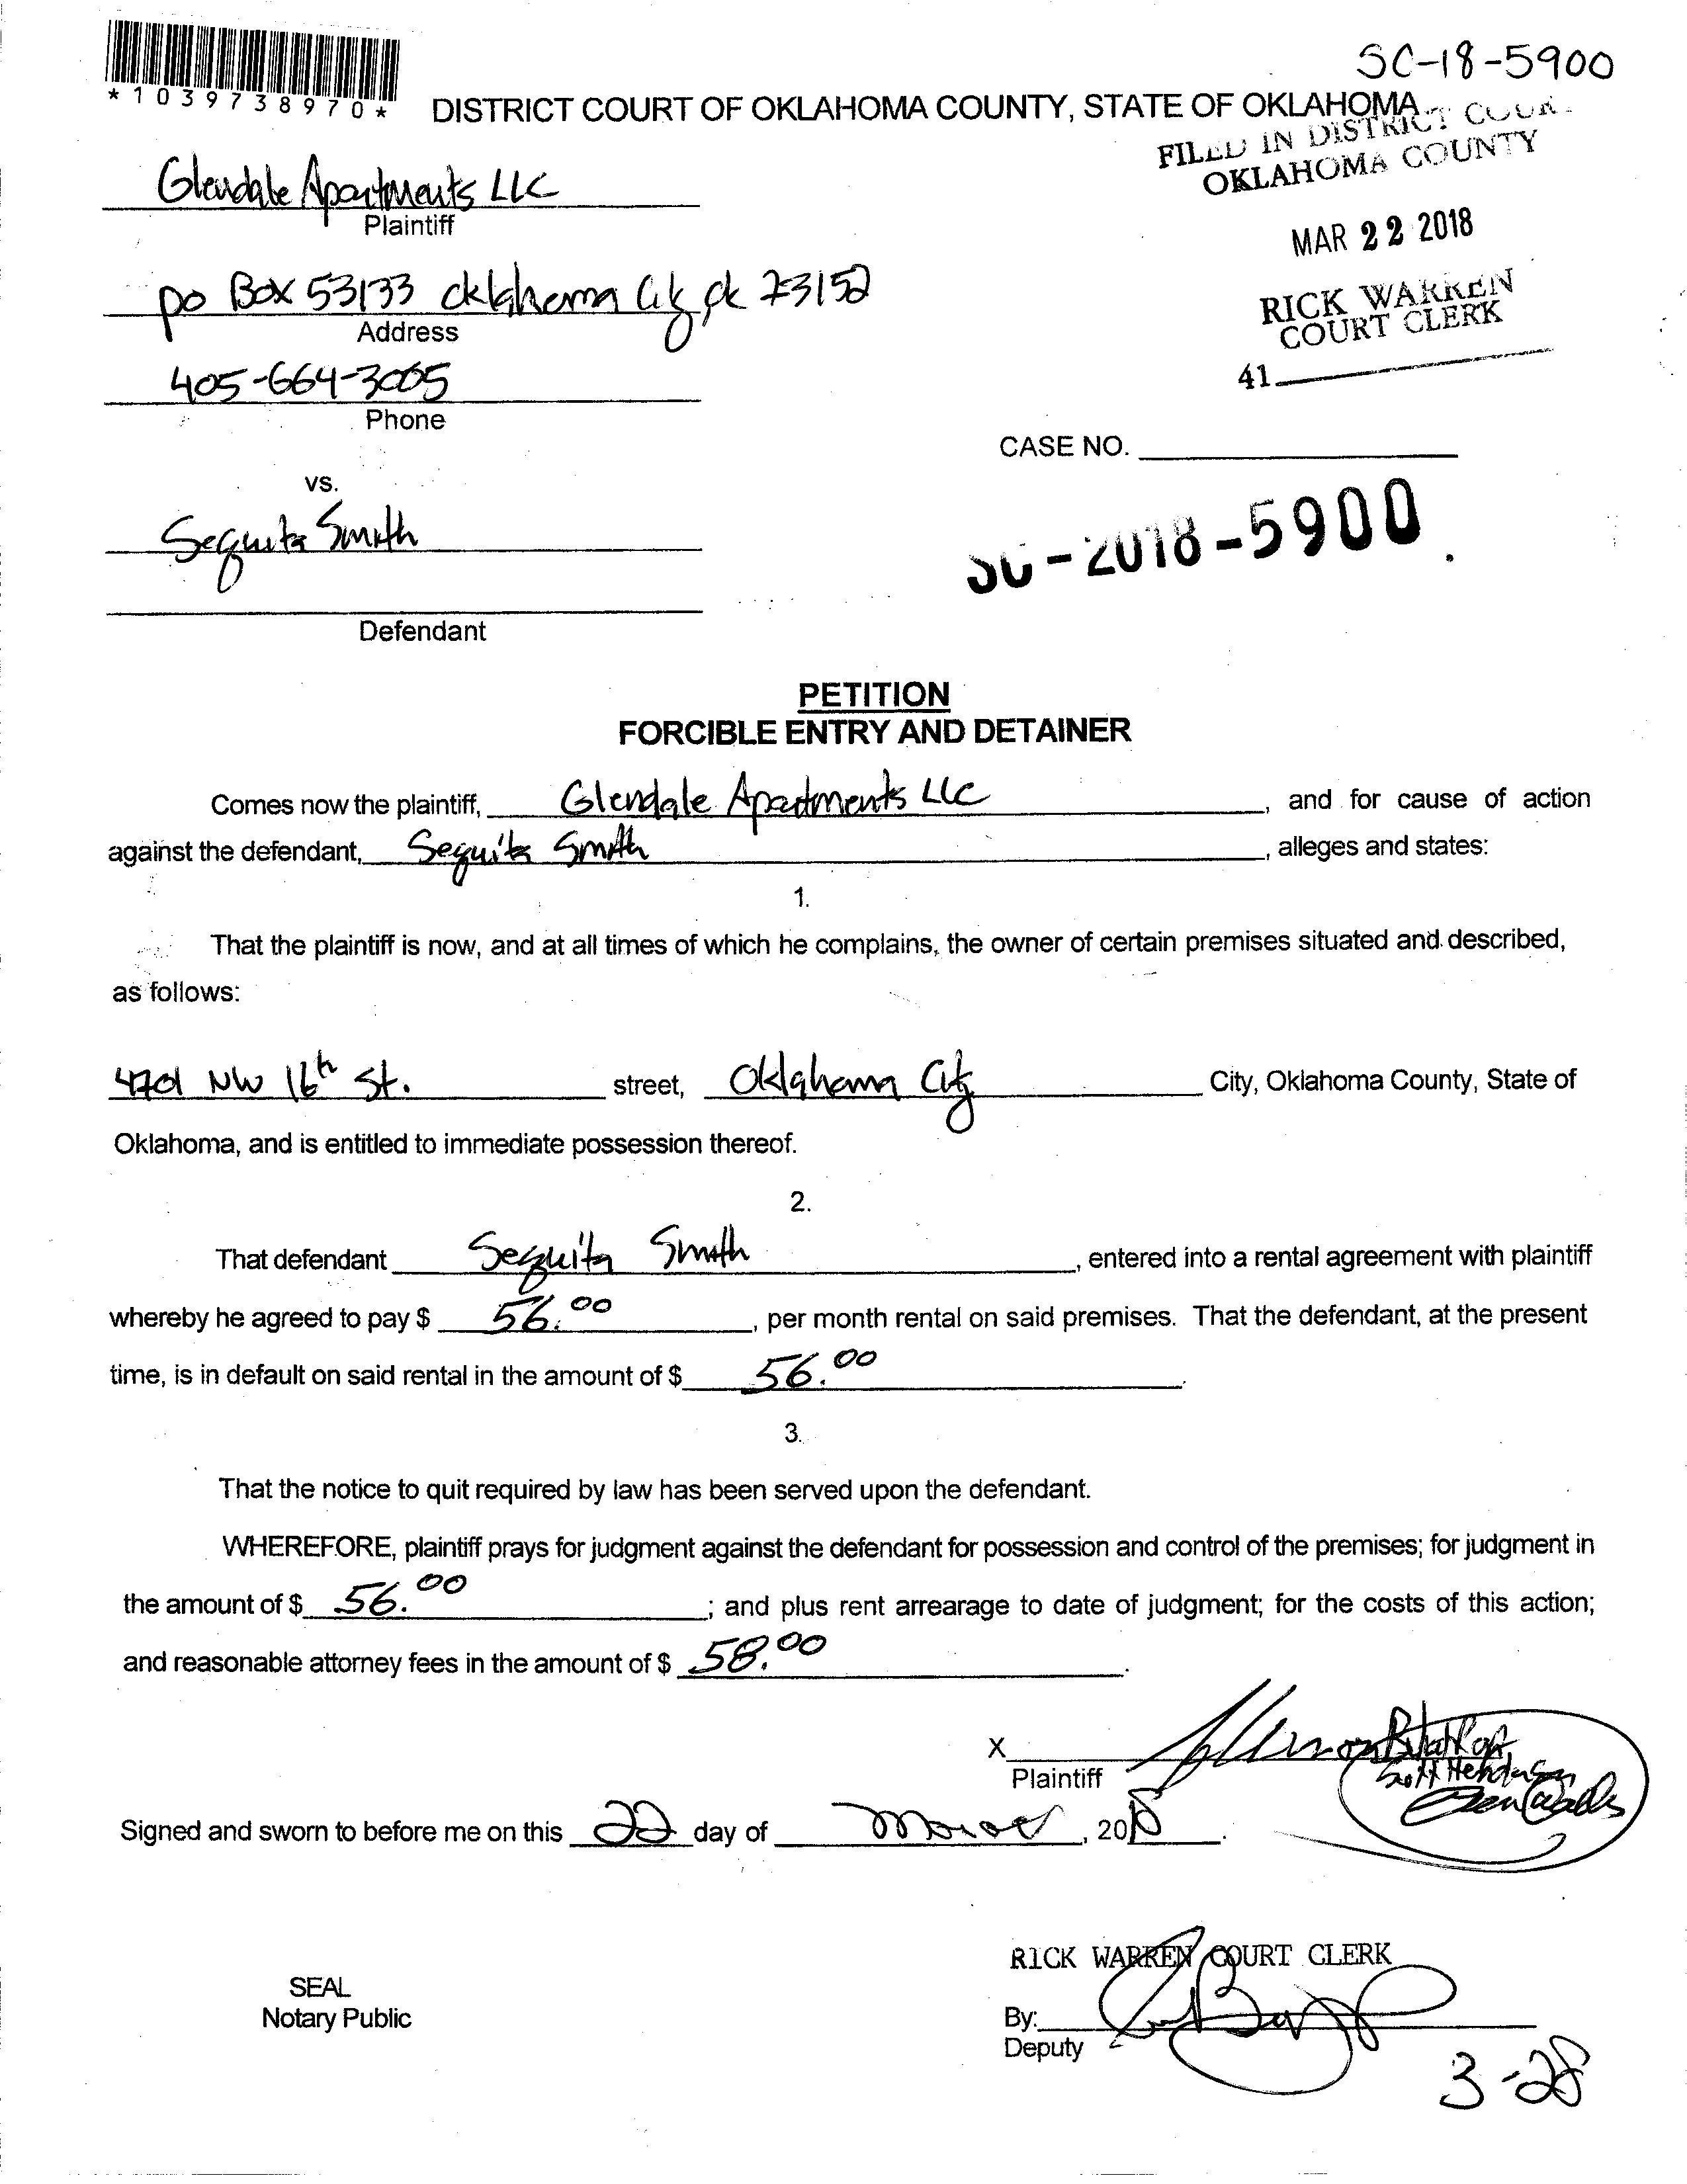 SC-18-5900
*1039738970*
DISTRICT COURT OF OKLAHOMA COUNTY, STATE OF OKLAHOMA
FILED IN DISTRICT COUR
OKLAHOMA COUNTY
Glendale Apartments LLC
Plaintiff
MAR 22 2018
po Box 53133 oklahoma City ok 73152
Address
RICK WARREN
COURT CLERK
405-664-3005
Phone
41
CASE NO.
vs.
Sequita Smith
SC-2018-5900
Defendant
PETITION
FORCIBLE ENTRY AND DETAINER
Comes now the plaintiff, Glendale Apartments LLC, and for cause of action
against the defendant, Sequita Smith, alleges and states:
1.
That the plaintiff is now, and at all times of which he complains, the owner of certain premises situated and described,
as follows:
4701 NW 16th St. street, Oklahoma City City, Oklahoma County, State of
Oklahoma, and is entitled to immediate possession thereof.
2.
That defendant Sequita Smith, entered into a rental agreement with plaintiff
whereby he agreed to pay $ 56.00, per month rental on said premises. That the defendant, at the present
time, is in default on said rental in the amount of $ 56.00.
3.
That the notice to quit required by law has been served upon the defendant.
WHEREFORE, plaintiff prays for judgment against the defendant for possession and control of the premises; for judgment in
the amount of $ 56.00; and plus rent arrearage to date of judgment; for the costs of this action;
and reasonable attorney fees in the amount of $ 58.00.
X
Plaintiff
Scott Henderson
Signed and sworn to before me on this 22 day of March, 2018.
RICK WARREN COURT CLERK
SEAL
Notary Public
By:
Deputy
3-28